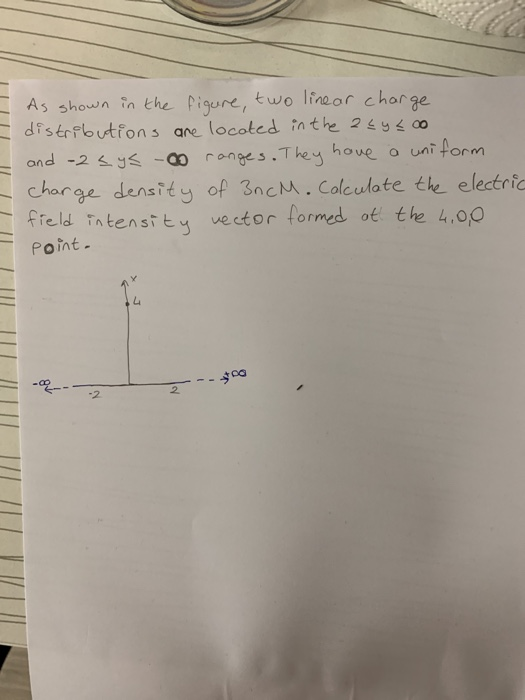 As shown in the figure, two linear charge
distributions are located in the 2 ≤ y ≤ ∞
and -2 ≤ y ≤ -∞ ranges. They have a uniform
charge density of 3ncM. Calculate the electric
field intensity vector formed at the 4,0,0
point.
x
4
-∞
+∞
-2
2